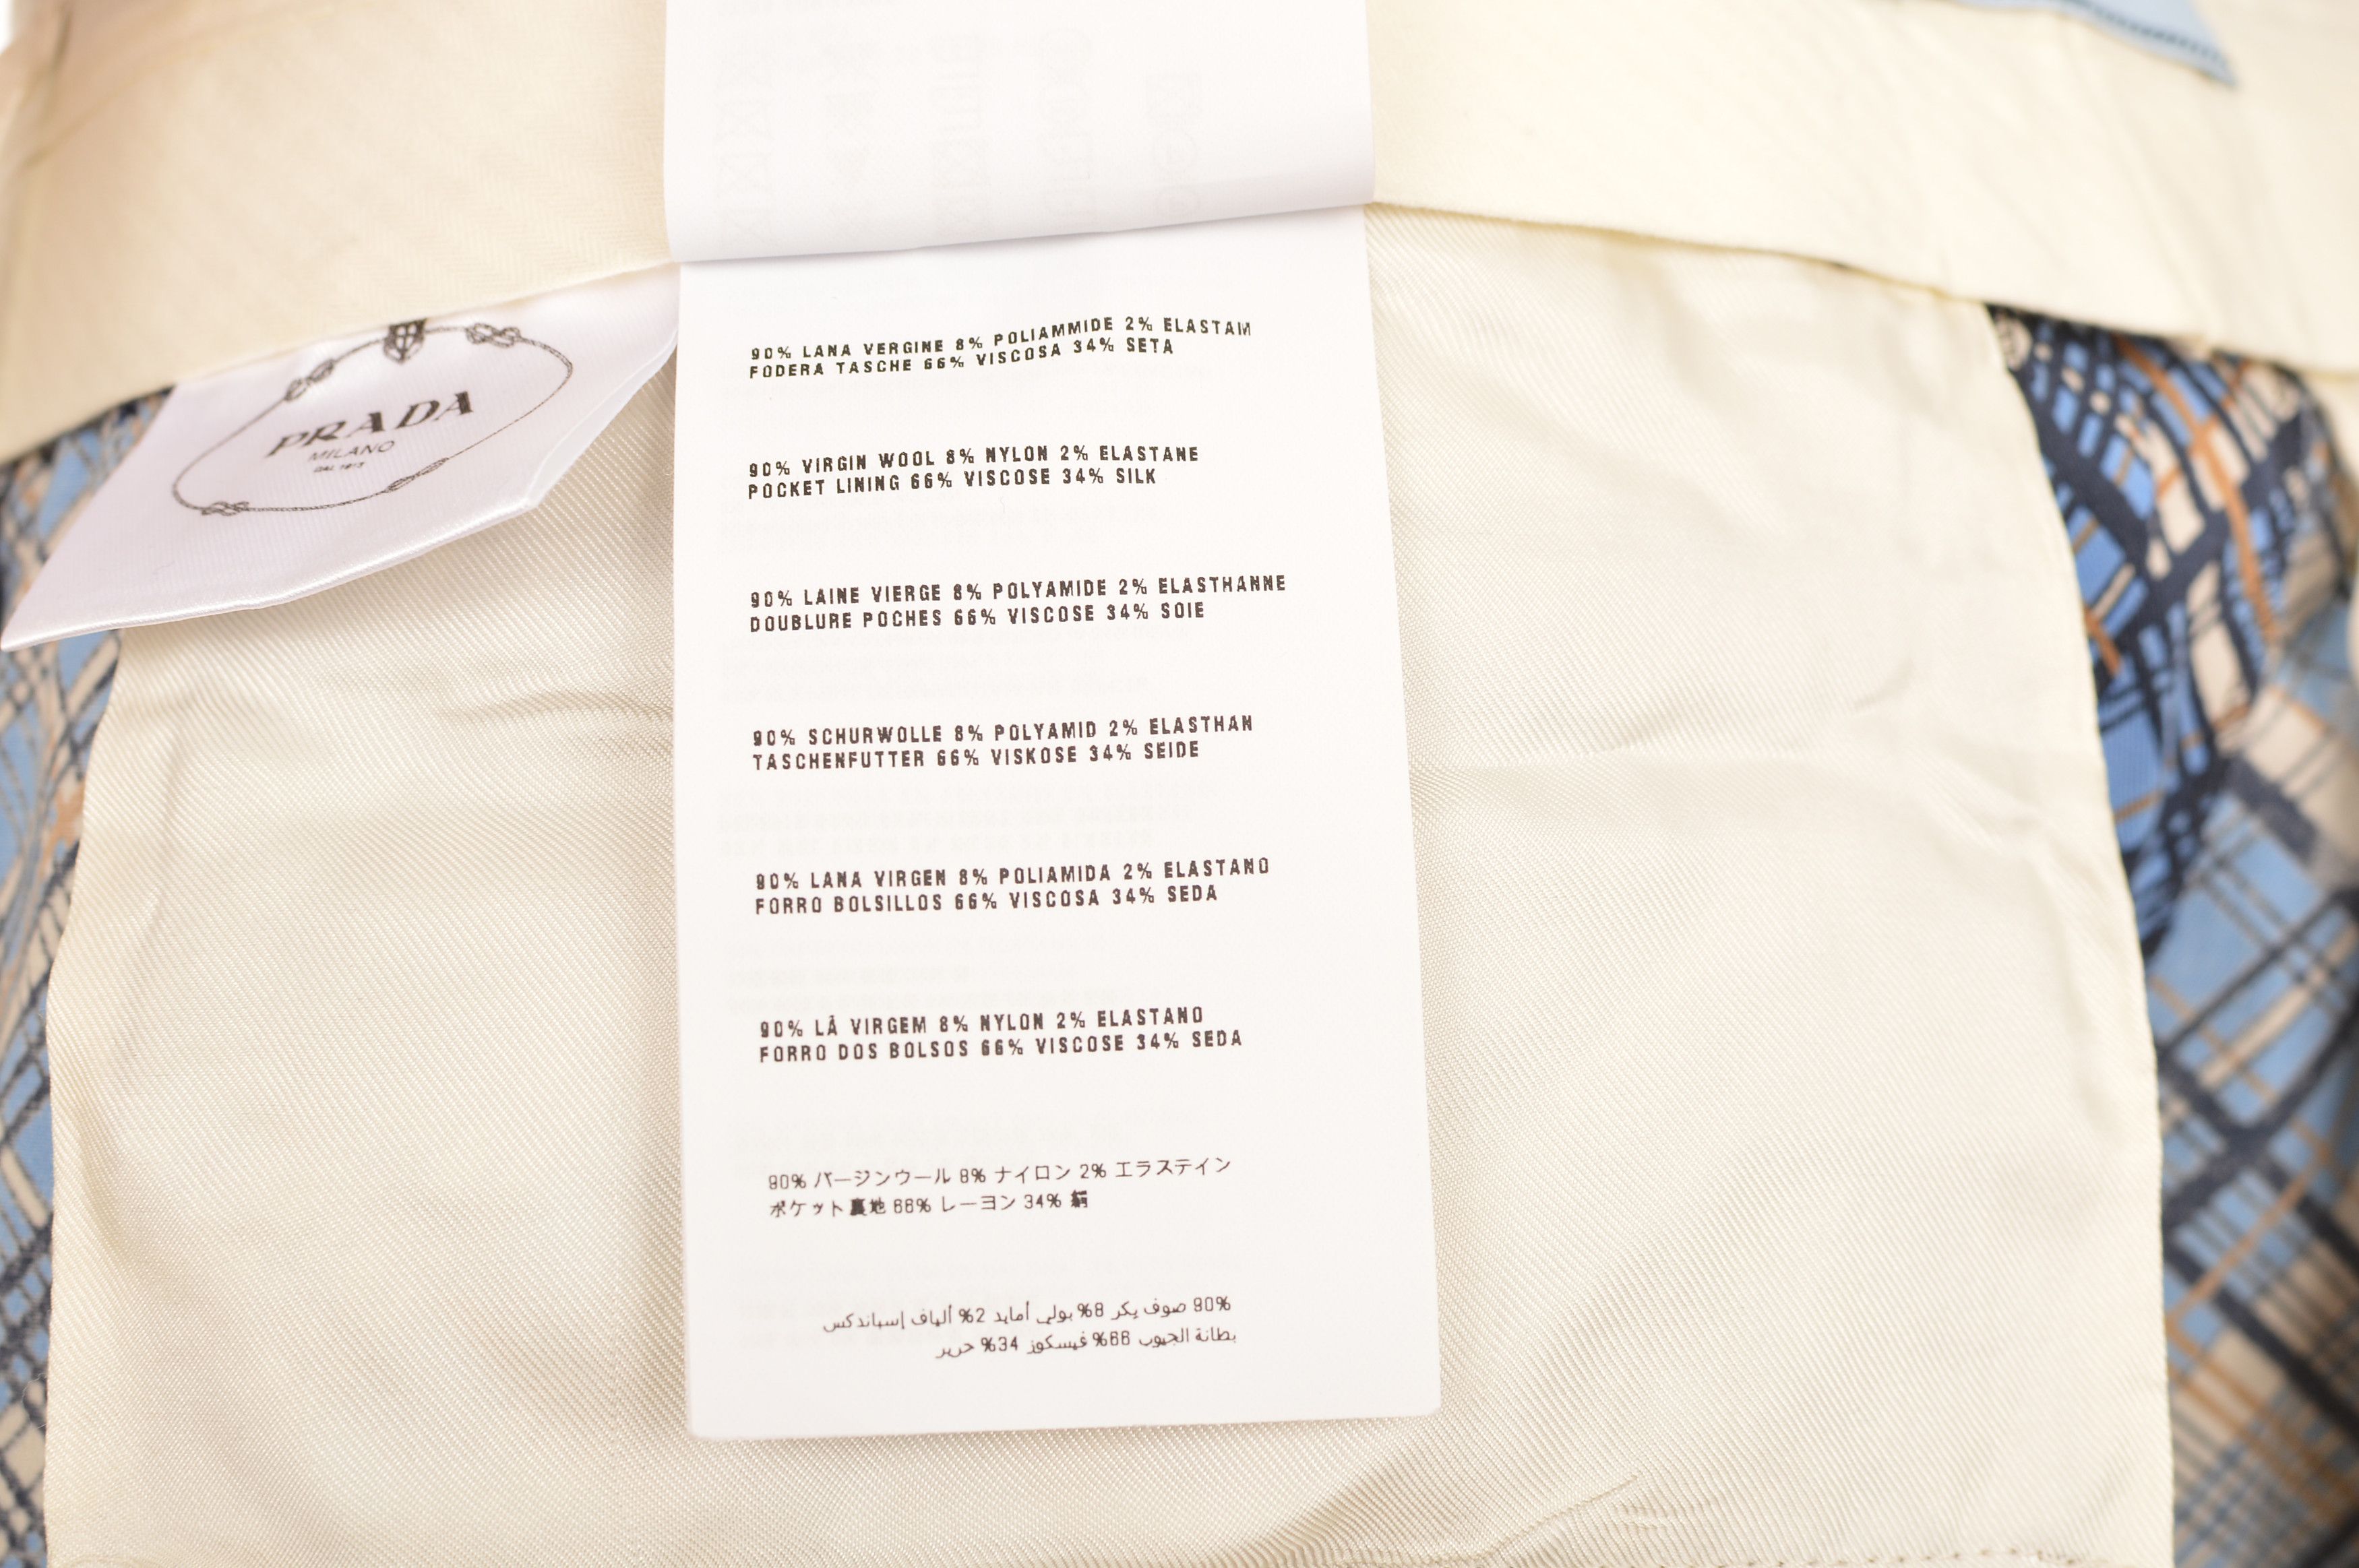 PRADA
MILANO
DAL 1913
90% LANA VERGINE 8% POLIAMMIDE 2% ELASTAM
FODERA TASCHE 66% VISCOSA 34% SETA
90% VIRGIN WOOL 8% NYLON 2% ELASTANE
POCKET LINING 66% VISCOSE 34% SILK
90% LAINE VIERGE 8% POLYAMIDE 2% ELASTHANNE
DOUBLURE POCHES 66% VISCOSE 34% SOIE
90% SCHURWOLLE 8% POLYAMID 2% ELASTHAN
TASCHENFUTTER 66% VISKOSE 34% SEIDE
90% LANA VIRGEN 8% POLIAMIDA 2% ELASTANO
FORRO BOLSILLOS 66% VISCOSA 34% SEDA
90% LÃ VIRGEM 8% NYLON 2% ELASTANO
FORRO DOS BOLSOS 66% VISCOSE 34% SEDA
90% バージンウール 8% ナイロン 2% エラステイン
ポケット裏地 66% レーヨン 34% 絹
90% صوف بكر 8% بولي أمايد 2% ألياف إسباندكس
بطانة الجيوب 66% فيسكوز 34% حرير